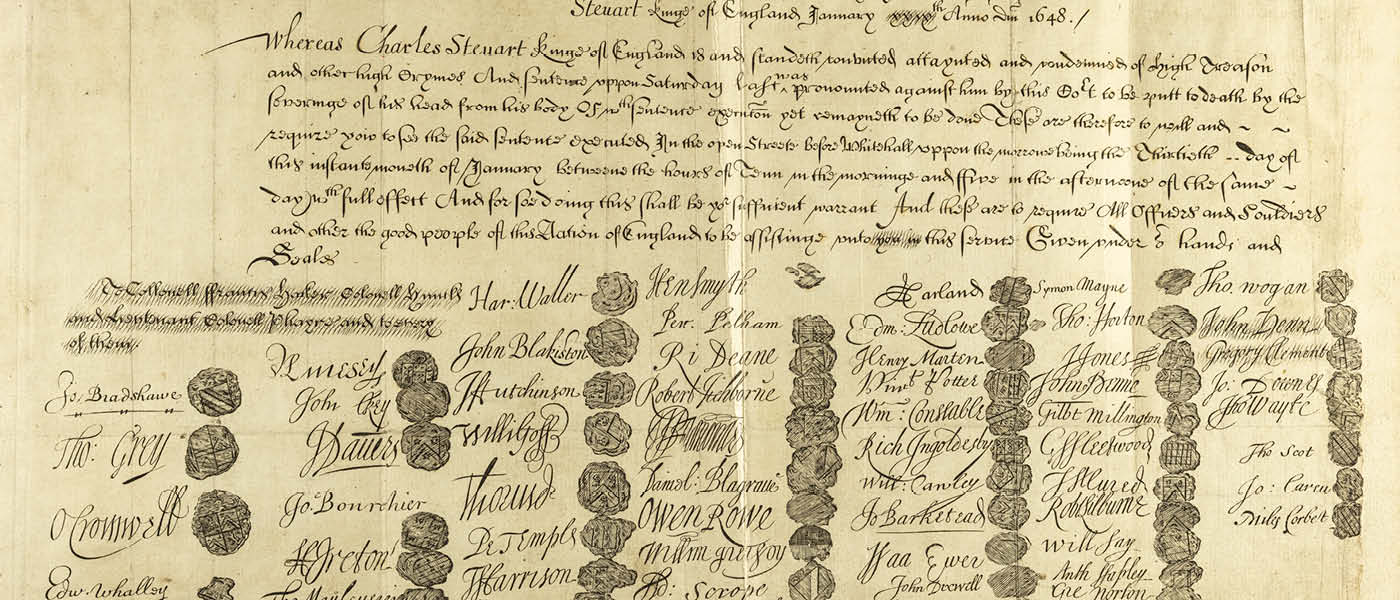 Steuart Kinge of England January xxixth Anno Dm̃ 1648./
Whereas Charles Steuart Kinge of England is and standeth convicted attaynted and condemned of High Treason
and other high Crymes And sentence uppon Saturday last was pronounced against him by this Cort to be putt to death by the
severinge of his head from his body Of wch sentence execucõn yet remayneth to be done These are therefore to will and
require you to see the said sentence executed In the open Streete before Whitehall uppon the morrowe being the Thirtieth day of
this instante moneth of January betweene the hours of Tenn in the morninge and ffive in the afternoone of the same
day wth full effect And for soe doing this shall be yor sufficient warrant And these are to require All Officers and Souldiers
and other the good people of this Nation of England to be assistinge unto you in this service Given under or hands and
Seales
To Collonell ffrancis Hacker Colonell Huncks
and Lieutenant Colonell Phayre and to every
of them
Jo. Bradshawe
Tho: Grey
O Cromwell
Edw. Whalley
John Okey
J Dauers
Jo. Bourchier
H Ireton
Har: Waller
John Blakiston
J Hutchinson
Willi Goff
Pe Temple
T Harrison
Hen Smyth
Per. Pelham
Ri Deane
Robert Tichborne
Daniel: Blagrave
Owen Rowe
Ad: Scrope
J Garland
Edm: Ludlowe
Henry Marten
Vinct Potter
Wm: Constable
Rich Ingoldesby
Will: Cawley
Jo Barkstead
Isaa Ewer
Symon Mayne
Tho: Horton
J Jones
Gilbt Millington
G ffleetwood
J Alured
Robt Lilburne
Will Say
Anth Stapley
Gre Norton
Tho. Wogan
John Venn
Gregory Clement
Jo: Downes
Tho Wayte
Tho Scot
Jo: Carew
Miles Corbet